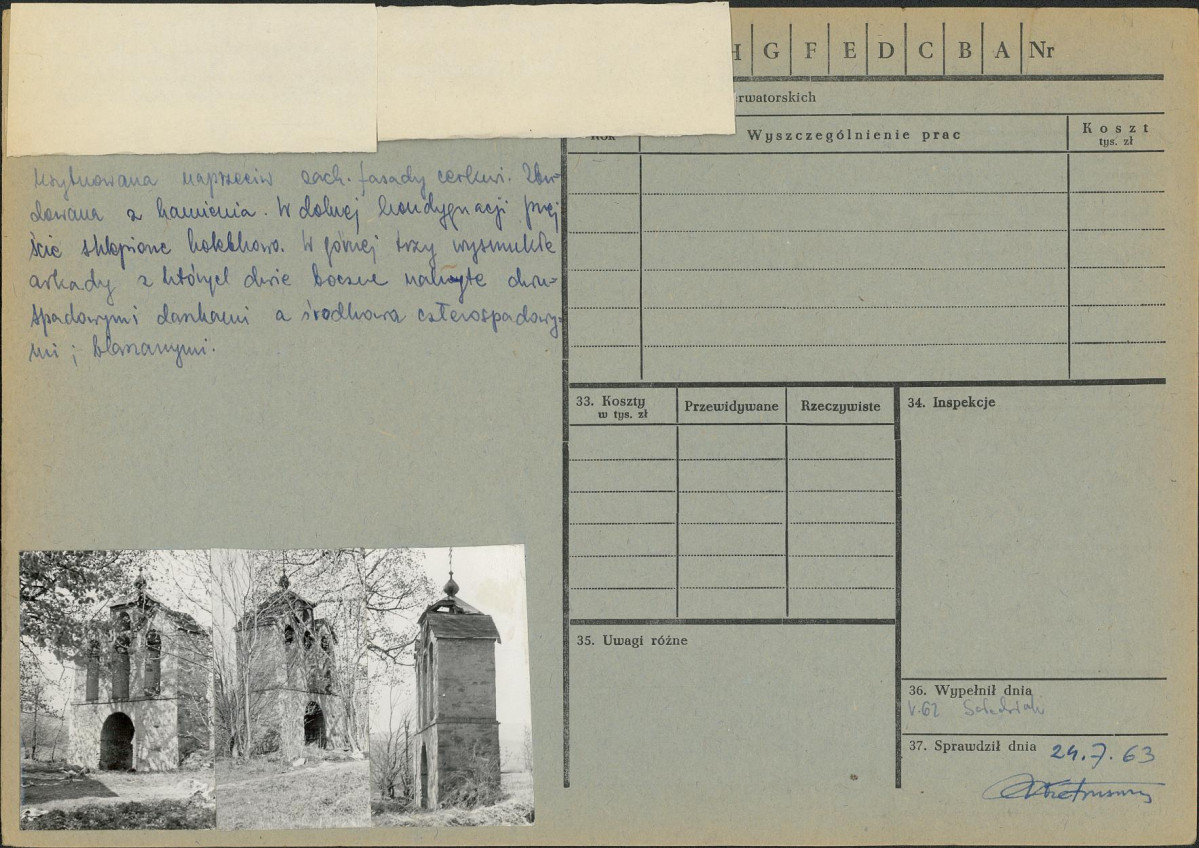 Usytuowana naprzeciw zach. fasady cerkwi. Zbu-
dowana z kamienia. W dolnej kondygnacji przej
ście sklepione kolebkowo. W górnej trzy wysmukłe
arkady z których dwie boczne nakryte dwu-
spadowymi daszkami a środkowa czterospadowy-
mi; blaszanymi.
H G F E D C B A Nr
erwatorskich
Rok
Wyszczególnienie prac
Koszt
tys. zł
33. Koszty
w tys. zł
Przewidywane
Rzeczywiste
34. Inspekcje
35. Uwagi różne
36. Wypełnił dnia
V.62
37. Sprawdził dnia 24.7.63